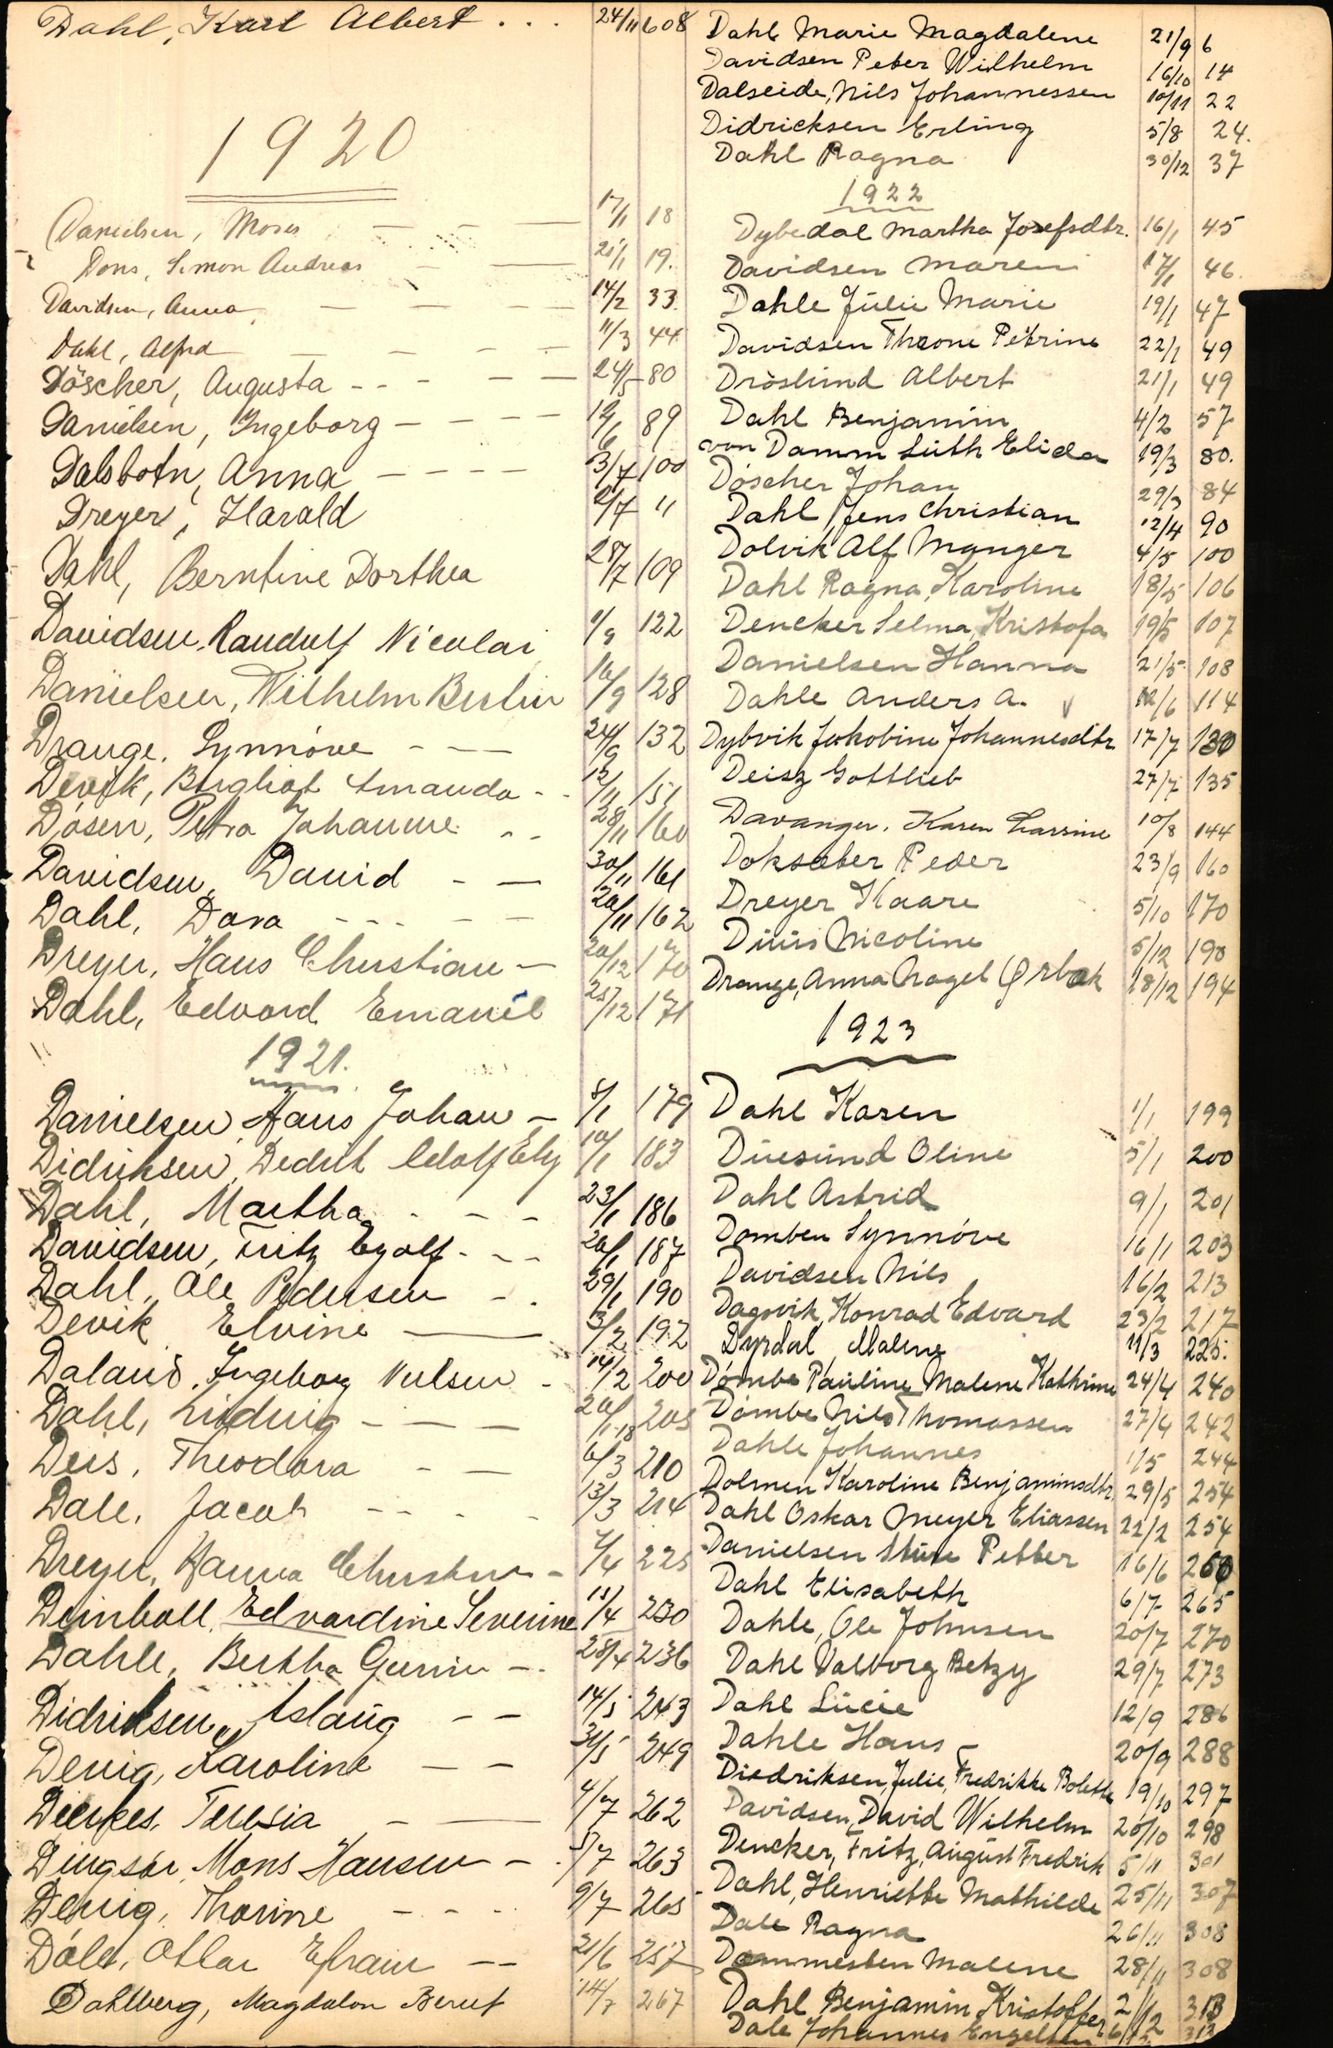 Dahl, Karl Albert . . . 24/11 608
1920
Danielsen, Moses — — — 17/1 18
Dons, Simon Andreas — — 21/1 19.
Davidsen, Anna — — — 14/2 33
Dahl, Alfred — — — — 11/3 44
Döscher, Augusta - - - — — 24/5 80
Danielsen, Ingeborg — - — 12/6 89
Dalsbotn, Anna — - - - 3/7 100
Dreyer, Harald 2/7 "
Dahl, Berntine Dorthea 28/7 109
Davidsen, Randulf Nicolai 1/9 122
Danielsen, Wilhelm Berlin 16/9 128
Drange, Synnöve - - — 24/9 132
Devik, Bergliot Amanda - . 12/11 151
Dösen, Petra Johanne . . 28/11 160
Davidsen, David - — 30/11 161
Dahl, Dora - - - — — 20/11 162
Dreyer, Hans Christian — 20/12 170
Dahl, Edvard Emanuel 25/12 171
1921.
Danielsen, Hans Johan — 8/1 179
Didriksen, Dedrik Adolf 10/1 183
Dahl, Martha - - - - 23/1 186
Davidsen, Fritz Eyolf - - - 20/1 187
Dahl, Ole Pedersen - . 29/1 190
Devik Elvine — 3/2 192
Daland, Ingeborg Nielsen . 14/2 200
Dahl, Ludvig - — — 20/1-18 205
Deis, Theodora - — 6/3 210
Dale, Jacob - - - . 13/3 214
Dreyer, Hanna - 7/4 225
Deinboll, Edvardine Severine 11/4 230
Dahle, Bertha — . 28/4 236
Didriksen, Aslaug - — 14/5 243
Devig, Karoline — — 31/5 249
Dierkes, Teresia - — 4/7 262
Dingsör, Mons Hansen - . 5/7 263
Devig, Thorine - - - 9/7 265
Dale, Ottar Efraim — 21/6 257
Dahlberg, Magdalon Berut 14/7 267
Dahl Marie Magdalene 21/9 6
Davidsen Peter Wilhelm 16/10 14
Dalseide, Nils Johannessen 10/11 22
Didricksen Erling 5/8 24.
Dahl Ragna 30/12 37
1922
Dybedal Martha Josefsdtr. 16/1 45
Davidsen Maren 17/1 46
Dahle Julie Marie 19/1 47
Davidsen Throne Petrine 22/1 49
Dröslund Albert 21/1 49
Dahl Benjamin 4/2 57
von Damm Lüth Elida 19/3 80.
Döscher Johan 29/3 84
Dahl Jens Christian 12/4 90
Dolvik Alf Manger 4/5 100
Dahl Ragna Karoline 18/5 106
Dencker Selma Kristofa 19/5 107
Danielsen Hanna 21/5 108
Dahle Anders A. 12/6 114
Dybvik Jakobine Johannesdtr. 17/7 130
Deisz Gottlieb 27/7 135
Davanger, Karen Larsine 10/8 144
Doksæter Peder 23/9 160
Dreyer Kaare 5/10 170
Duus Nicoline 5/12 190
Drange, Anna Nagel Ørbæk 18/12 194
1923
Dahl Karen 1/1 199
Duesund Oline 5/1 200
Dahl Astrid 9/1 201
Domben Synnöve 16/1 203
Davidsen Nils 16/2 213
Dagsvik, Konrad Edvard 23/2 217
Dyrdal Malene 11/3 225.
Dömbe Pauline Malene Kathrine 24/4 240
Dömbe Nils Thomassen 27/4 242
Dahle Johannes 1/5 244
Dolmen Karoline Benjaminsdtr. 29/5 254
Dahl Oskar Meyer Eliassen 22/2 254
Danielsen Sture Petter 16/6 260
Dahl Elisabeth 6/7 265
Dahle, Ole Johnsen 20/7 270
Dahl Valborg Betzy 29/7 273
Dahl Lucie 12/9 286
Dahle Hans — 20/9 288
Diedriksen, Julie, Fredrikke Bolette 19/10 297
Davidsen, David Wilhelm 20/10 298
Dencker, Fritz, August Fredrik 5/11 301
Dahl, Henriette Mathilde 25/11 307
Dale Ragna 26/11 308
Dammesten Malene 28/11 308
Dahl Benjamin Kristoffer 2/12 313
Dale Johannes Engelsen 6/12 313